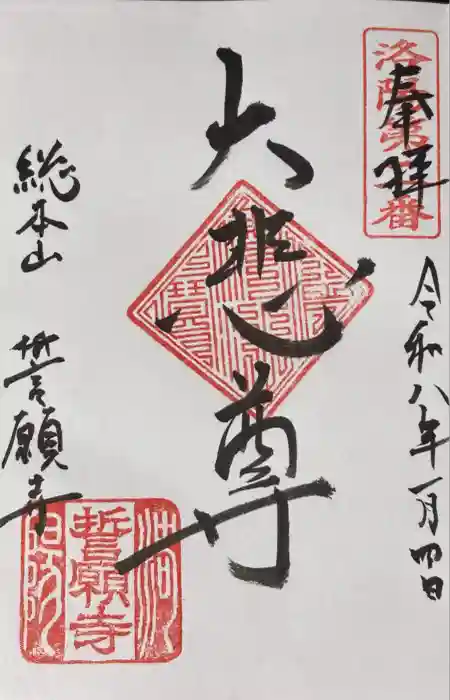 洛陽第二番
奉拝
令和八年一月四日
大悲尊
総本山 誓願寺
誓願寺